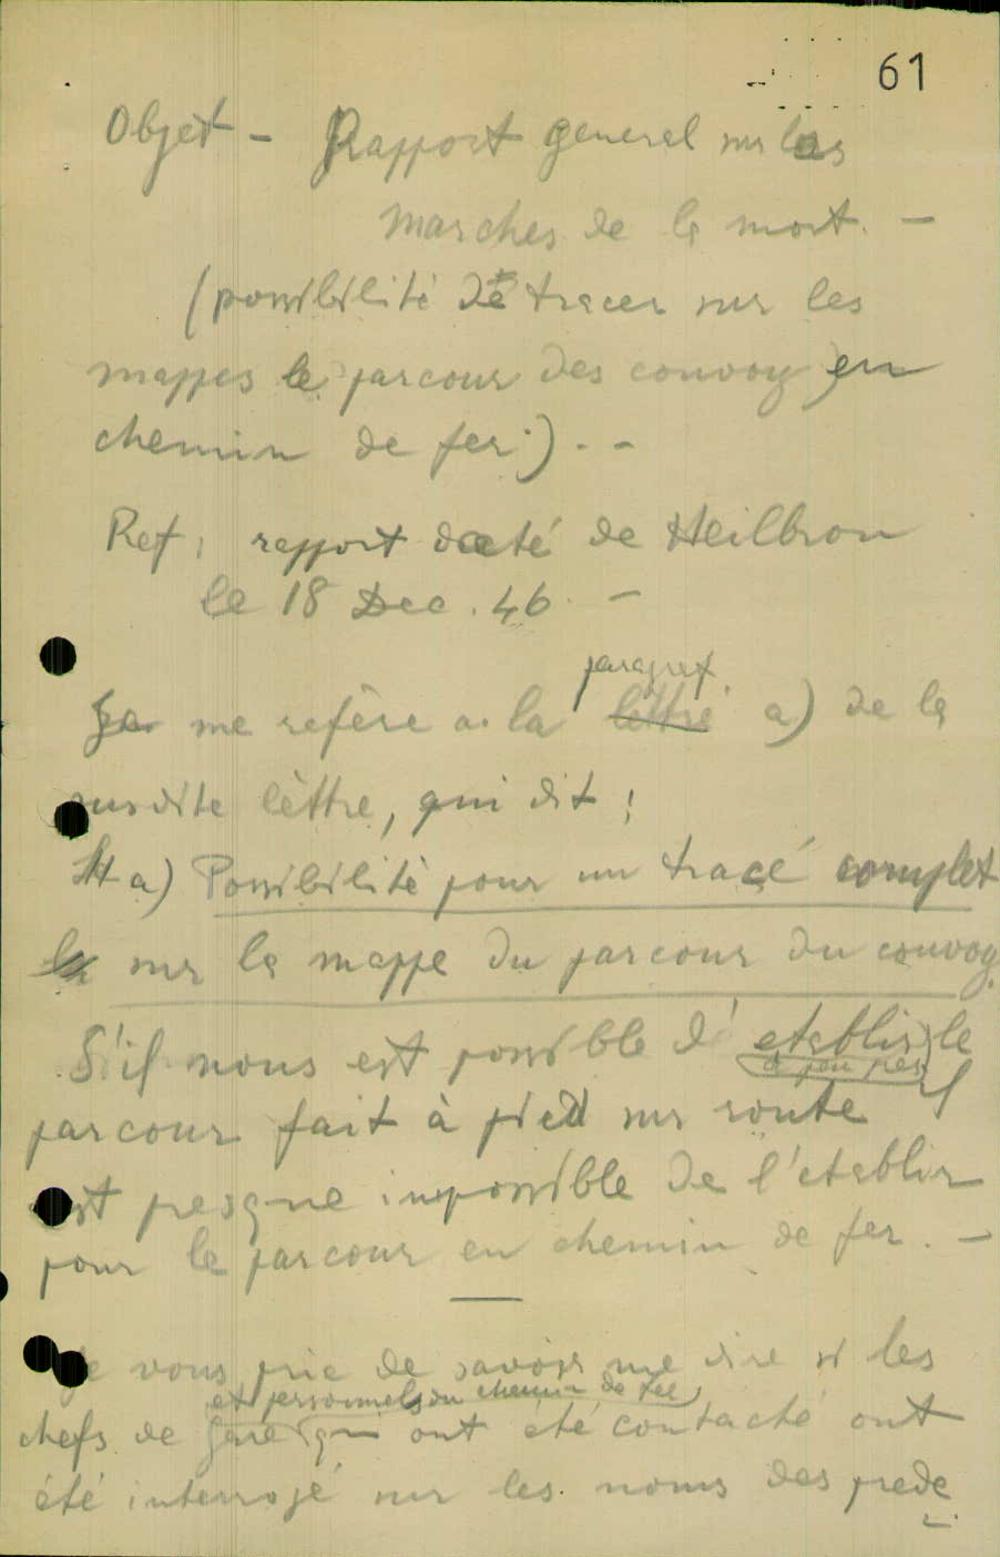 61
Objet - Rapport general sur les
marches de la mort. -
(possibilité de tracer sur les
mappes le parcour des convoy en
chemin de fer.) . -
Ref : rapport daté de Heilbron
le 18 Dec. 46. -
paragref.
Je me refère a la lettre a) de la
susdite lèttre, qui dit :
a) Possibilité pour un tracé complet
sur la mappe du parcour du convoy.
S'il nous est possible d'etablir le
à peu pres
parcour fait à pied sur route il
est presque impossible de l'etablir
pour le parcour en chemin de fer. -
Je vous prie de savoir me dire si les
et personnels du chemin de fer
chefs de gare qui ont été contacté ont
été interrogé sur les noms des prede